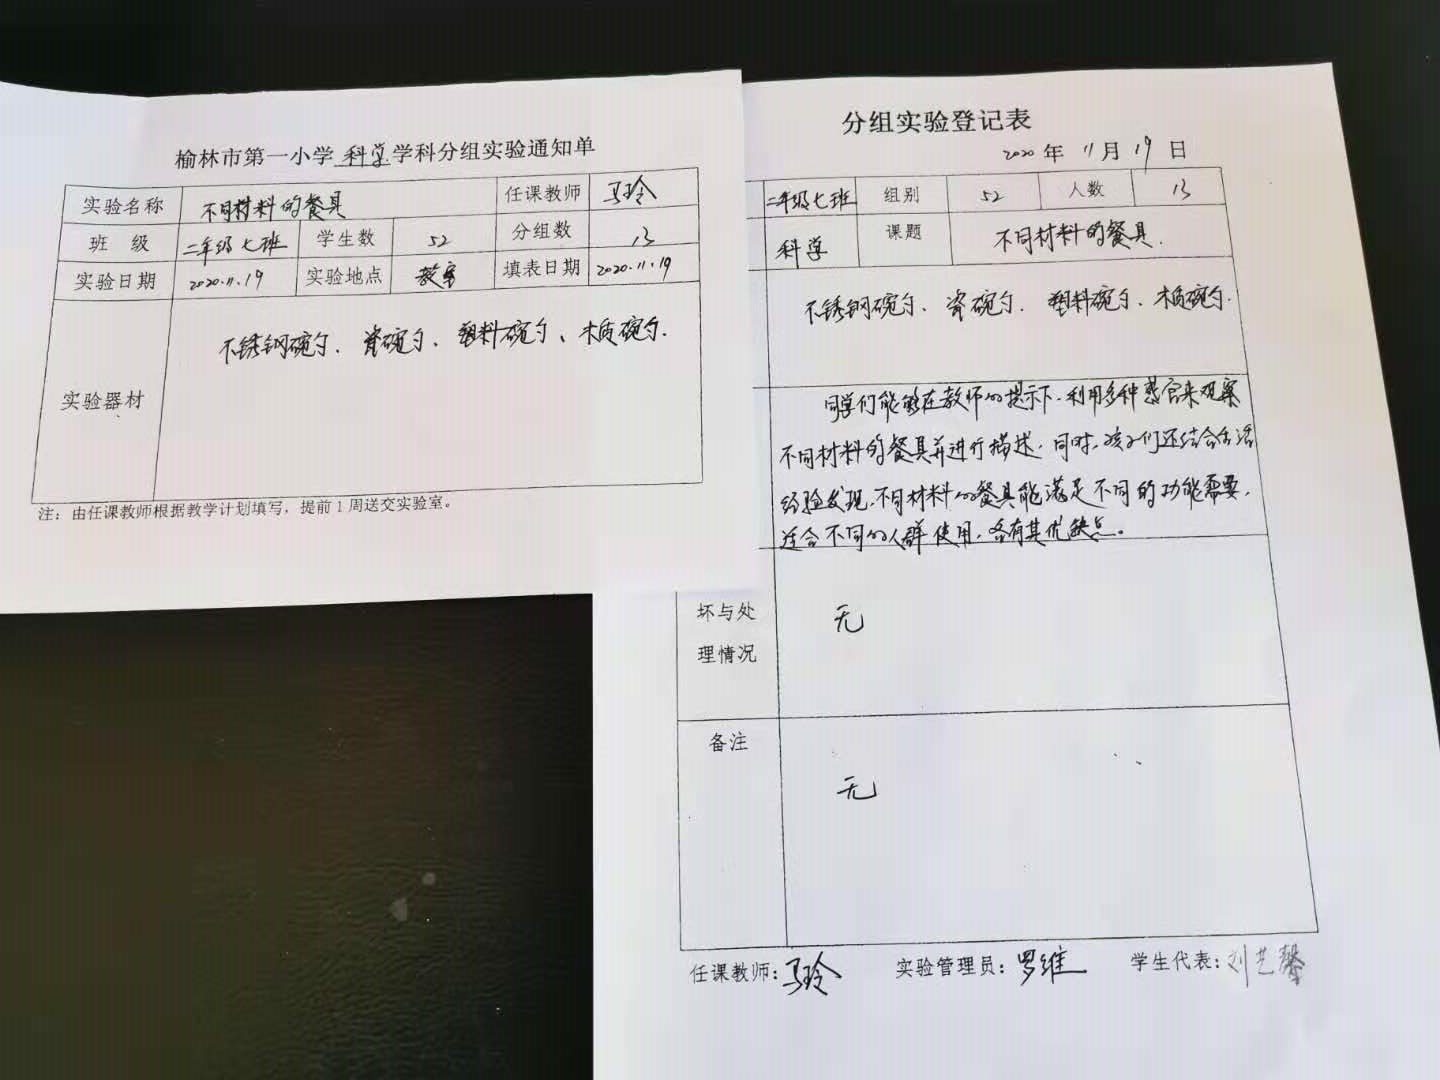 榆林市第一小学 科学 学科分组实验通知单
实验名称 不同材料的餐具 任课教师 马玲
班 级 二年级七班 学生数 52 分组数 13
实验日期 2020.11.19 实验地点 教室 填表日期 2020.11.19
实验器材 不锈钢碗勺、瓷碗勺、塑料碗勺、木质碗勺.
注：由任课教师根据教学计划填写，提前1周送交实验室。
分组实验登记表
2020 年 11 月 19 日
二年级七班 组别 52 人数 13
科学 课题 不同材料的餐具.
不锈钢碗勺、瓷碗勺、塑料碗勺、木质碗勺.
同学们能够在教师的提示下,利用多种感官来观察
不同材料的餐具并进行描述.同时,孩子们还结合生活
经验发现,不同材料的餐具能满足不同的功能需要,
适合不同的人群使用,各有其优缺点。
坏与处
理情况
无
备注
无
任课教师：马玲 实验管理员：罗维 学生代表：刘艺馨